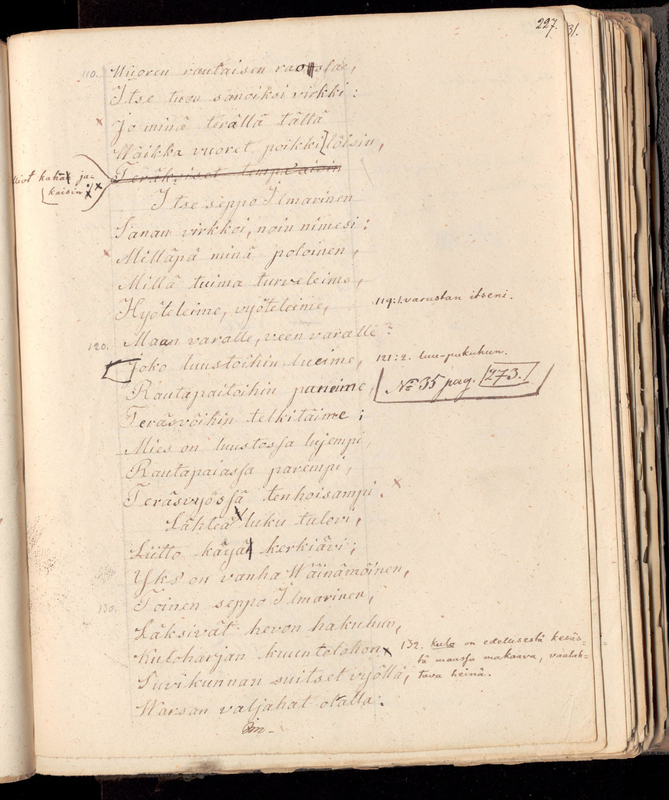 227.
31.
110. Wuoren rautaisen raosta,
Itse tuon sanoiksi virkki:
Jo minä terällä tällä
Waikka vuoret poikki löisin,
kahta ja-
kaisin
Itse seppo Ilmarinen
Sanan virkkoi, noin nimesi:
Milläpä minä poloinen,
Millä tuima turveleime,
Hyöteleime, vyöteleime,
119:1. varustan itseni.
120. Maan varalle, veen varalle?
Joko luustoihin lueime,
121:2. luu-pukuhun.
Rautapaitoihin paneime,
No 35 pag. 273.
Teräsvöihin telkitäime;
Mies on luustossa lujempi,
Rautapaiassa parempi,
Teräsvyössä tenhoisampi.
Lähteä luku tulovi,
Liitto käyä kerkiävi;
Yks on vanha Wäinämöinen,
130. Toinen seppo Ilmarinen,
Läksivät hevon hakuhun,
Kuloharjan kuuntelohon
132. Kulo on edellisestä kesäs-
tä maassa makaava, vaalah-
tava heinä.
Suvikunnan suitset vyöllä,
Warsan valjahat olalla.